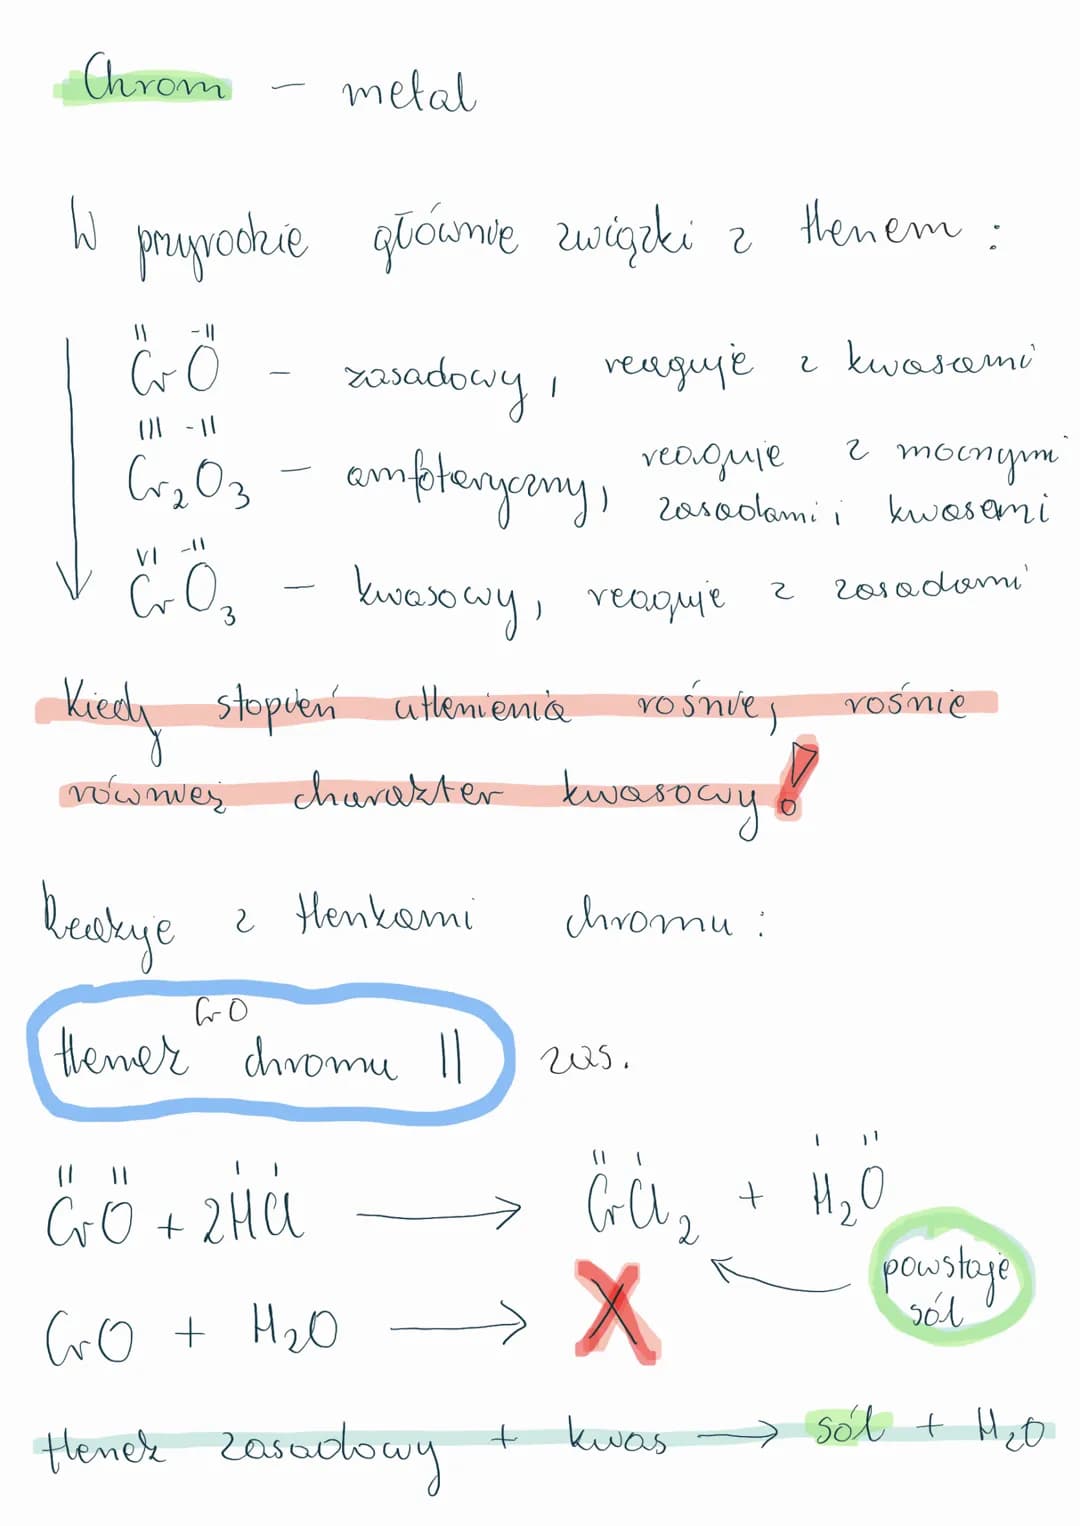 Chrom - metal
W przyrodzie głównie związki z tlenem :
II -II
CrO - zasadowy, reaguje z kwasami
III -II
Cr₂O₃ - amfoteryczny, reaguje z mocnymi
zasadami i kwasami
VI -II
CrO₃ - kwasowy, reaguje z zasadami
Kiedy stopień utlenienia rośnie, rośnie
również charakter kwasowy!
Reakcje z tlenkami chromu :
CrO
tlenek chromu II zas.
II II I I II I I II
CrO + 2HCl → CrCl₂ + H₂O
powstaje
sól
CrO + H₂O → X
tlenek zasadowy + kwas → sól + H₂O